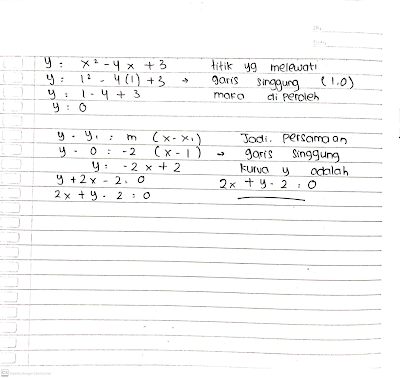 y = x² - 4x + 3 titik yg melewati
y = 1² - 4(1) + 3 → garis singgung (1.0)
y = 1 - 4 + 3 maka diperoleh
y = 0
y - y₁ = m (x - x₁) Jadi. Persamaan
y - 0 = -2 (x - 1) → garis singgung
y = -2x + 2 kurva y adalah
y + 2x - 2 = 0 2x + y - 2 = 0
2x + y - 2 = 0